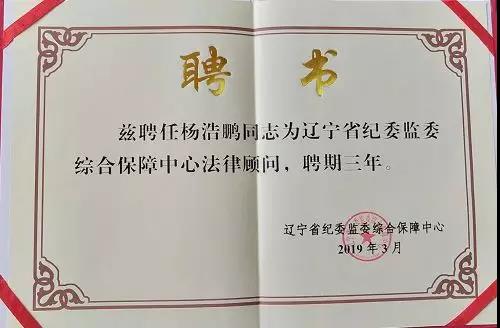 聘书
兹聘任杨浩鹏同志为辽宁省纪委监委
综合保障中心法律顾问，聘期三年。
辽宁省纪委监委综合保障中心
2019年3月